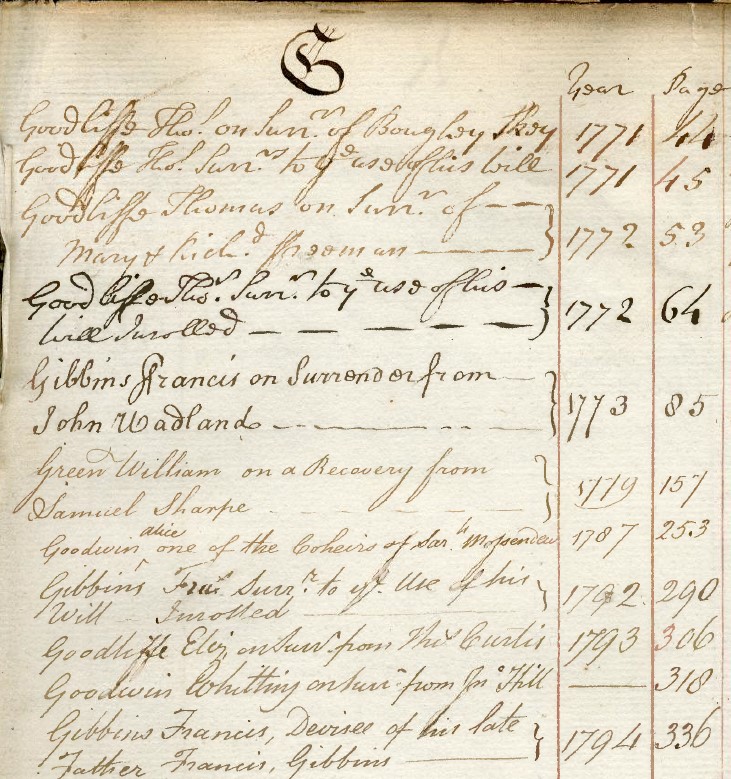 G
Year Page
Goodliffe Tho.s on Surr.r of Bougley Skey 1771 44
Goodliffe Tho.s Surr.r to y.e use of his will 1771 45
Goodliffe Thomas on Surr.r of
Mary & Rich.d Freeman 1772 53
Goodliffe Tho.s Surr.r to y.e use of his
will Inrolled 1772 64
Gibbins Francis on Surrender from
John Wadland 1773 85
Green William on a Recovery from
Samuel Sharpe 1779 157
Goodwin alice one of the Coheirs of Sar.h 1787 253
Gibbins Fra.s Surr.r to y.e Use of his
Will Inrolled 1792 290
Goodliffe Eliz on Surr.r from Tho.s Curtis 1793 306
Goodwin Whitting on Surr.r from Jn.o Hill 318
Gibbins Francis, Devisee of his late
Father Francis, Gibbins 1794 336